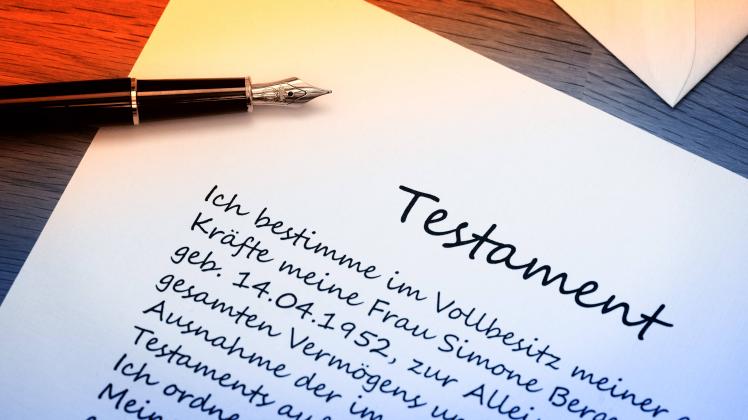 Testament
Ich bestimme im Vollbesitz meiner
Kräfte meine Frau Simone
geb. 14.04.1952, zur
gesamten Vermögens
Ausnahme der im
Testaments
Ich